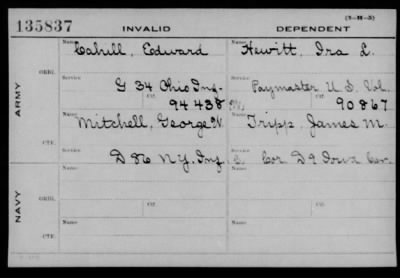 (3-H-5)
135837 INVALID DEPENDENT
ARMY
ORIG.
Name Cahill, Edward
Name Hewitt, Ira L.
Service G 34 Ohio Inf.
Service Paymaster U S Vol.
Ctf. 94 438
Ctf. 90867
CTF.
Name Mitchell, George N.
Name Tripp, James M.
Service D 86 N.Y. Inf
Service Cor. D 9 Iowa Cav.
NAVY
ORIG.
Name
Name
Service
Ctf.
Service
Ctf.
CTF.
Name
Name